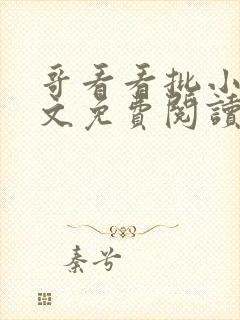 哥看看批小
文免費閱讀
秦兮